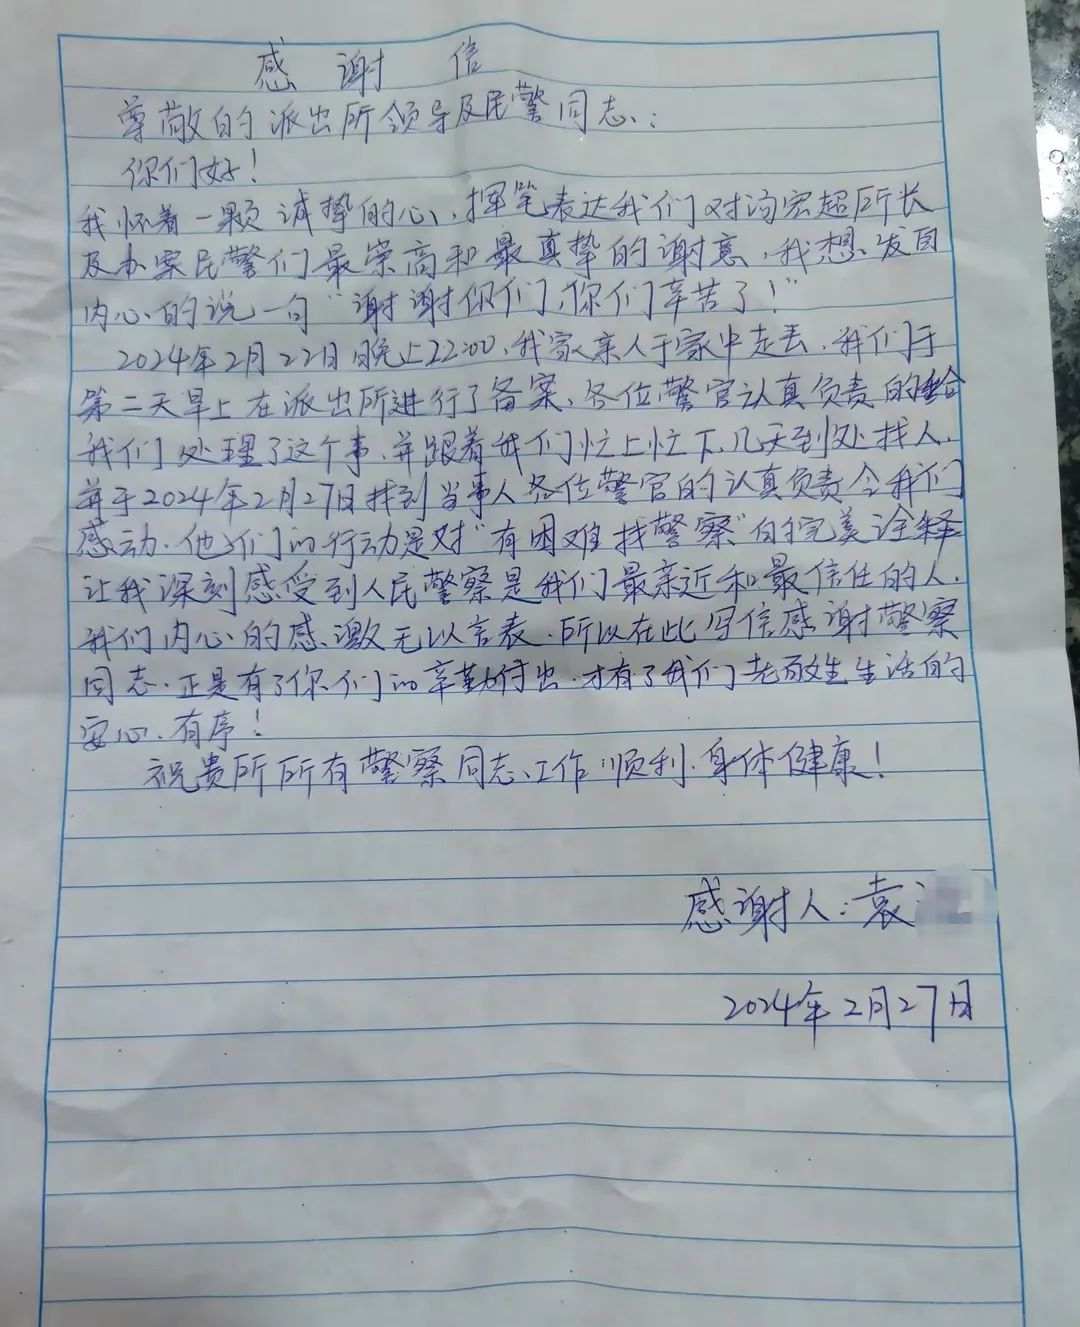 感谢信
尊敬的派出所领导及民警同志：
你们好！
我怀着一颗诚挚的心，挥笔表达我们对汤宏超所长
及办案民警们最崇高和最真挚的谢意，我想发自
内心的说一句“谢谢你们，你们辛苦了！”
2024年2月22日晚上22:00，我家亲人于家中走丢，我们于
第二天早上在派出所进行了备案、各位警官认真负责的给
我们处理了这个事，并跟着我们忙上忙下，几天到处找人，
并于2024年2月27日找到当事人各位警官的认真负责令我们
感动。他们的行动是对“有困难找警察”的完美诠释
让我深刻感受到人民警察是我们最亲近和最信任的人，
我们内心的感激无以言表，所以在此写信感谢警察
同志。正是有了你们的辛勤付出，才有了我们老百姓生活的
安心、有序！
祝贵所所有警察同志、工作顺利、身体健康！
感谢人：袁
2024年2月27日